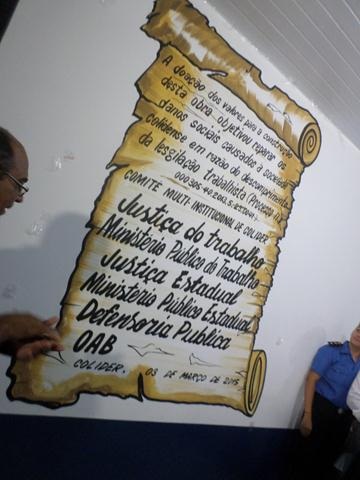 A doação dos valores para a construção
desta obra objetivou reparar os
danos sociais causados à sociedade
colidense em razão do descumprimento
da legislação trabalhista (Processo
COMITÊ MULTI-INSTITUCIONAL DE COLIDER
Justiça do trabalho
Ministério Público do Trabalho
Justiça Estadual
Ministério Público Estadual
Defensoria Pública
OAB
COLIDER. 03 DE MARÇO DE 2015